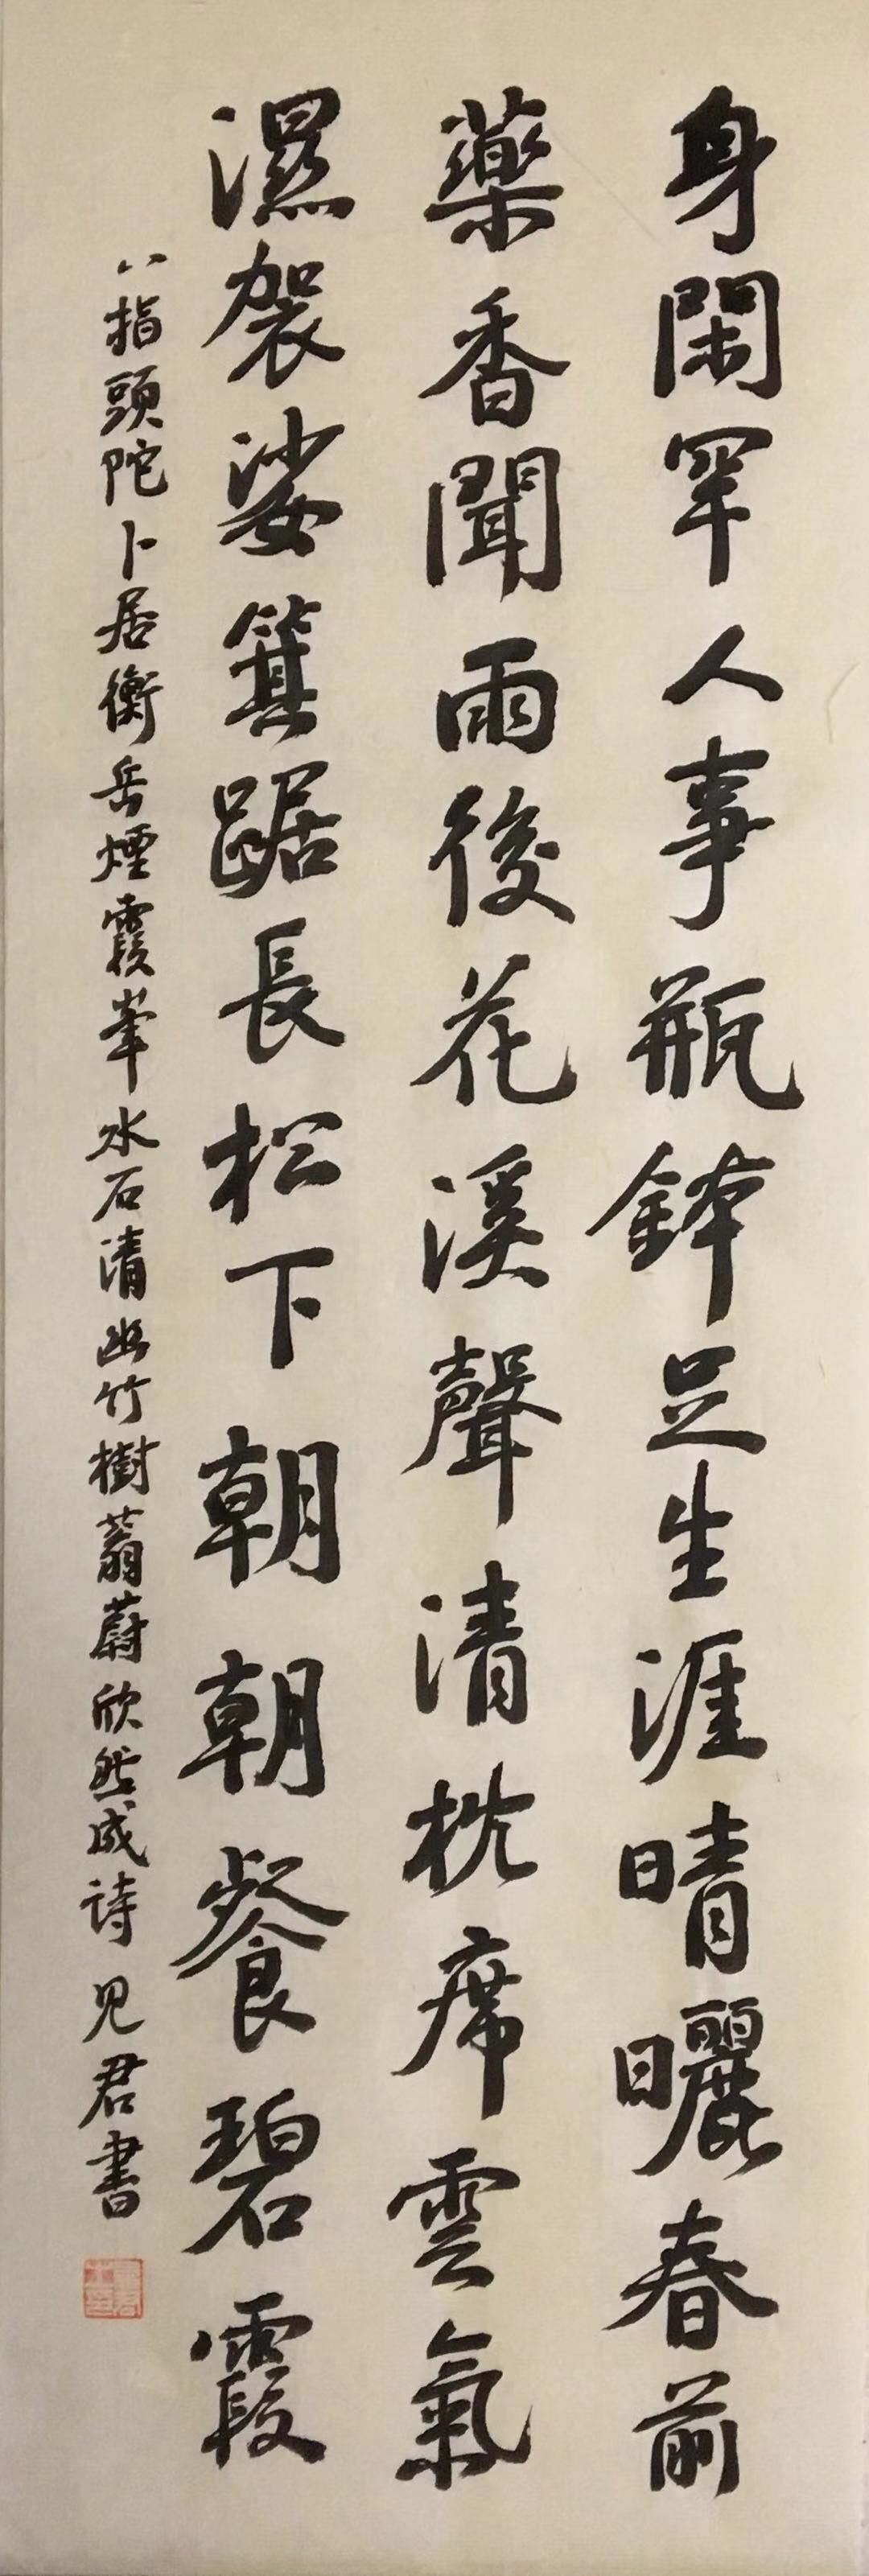 身閑罕人事瓶鉢足生涯晴曬春前
藥香聞雨後花溪聲清枕席雲氣
濕袈裟箕踞長松下朝朝餐碧霞
八指頭陀卜居衡岳煙霞峯水石清幽竹樹蓊蔚欣然成詩 見君書